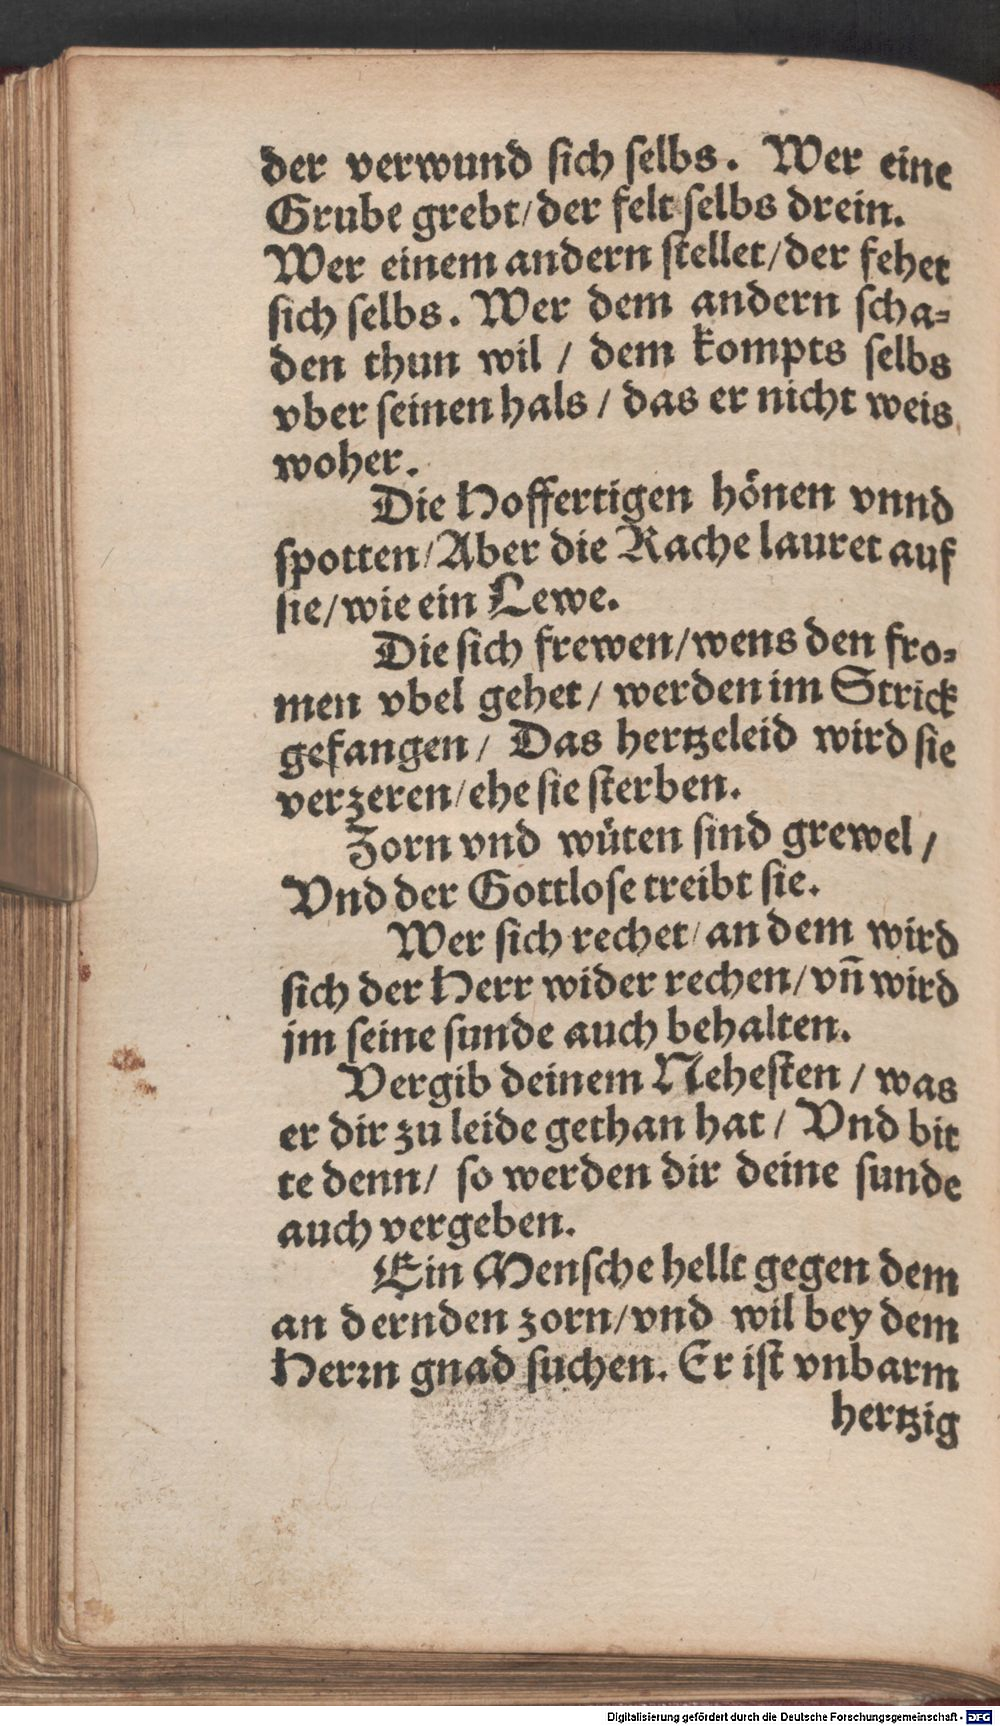 der verwund sich selbs. Wer eine
Grube grebt/der felt selbs drein.
Wer einem andern stellet/der fehet
sich selbs. Wer dem andern scha-
den thun wil / dem kompts selbs
vber seinen hals / das er nicht weis
woher.
Die Hoffertigen hönen vnnd
spotten/Aber die Rache lauret auf
sie/wie ein Lewe.
Die sich frewen/wens den fro-
men vbel gehet/ werden im Strick
gefangen/ Das hertzeleid wird sie
verzeren/ehe sie sterben.
Zorn vnd wüten sind grewel /
Vnd der Gottlose treibt sie.
Wer sich rechet/an dem wird
sich der Herr wider rechen/vñ wird
jm seine sunde auch behalten.
Vergib deinem Nehesten / was
er dir zu leide gethan hat / Vnd bit
te denn/ so werden dir deine sunde
auch vergeben.
Ein Mensche hellt gegen dem
an dernden zorn/vnd wil bey dem
Herrn gnad suchen. Er ist vnbarm
hertzig
Digitalisierung gefördert durch die Deutsche Forschungsgemeinschaft - DFG